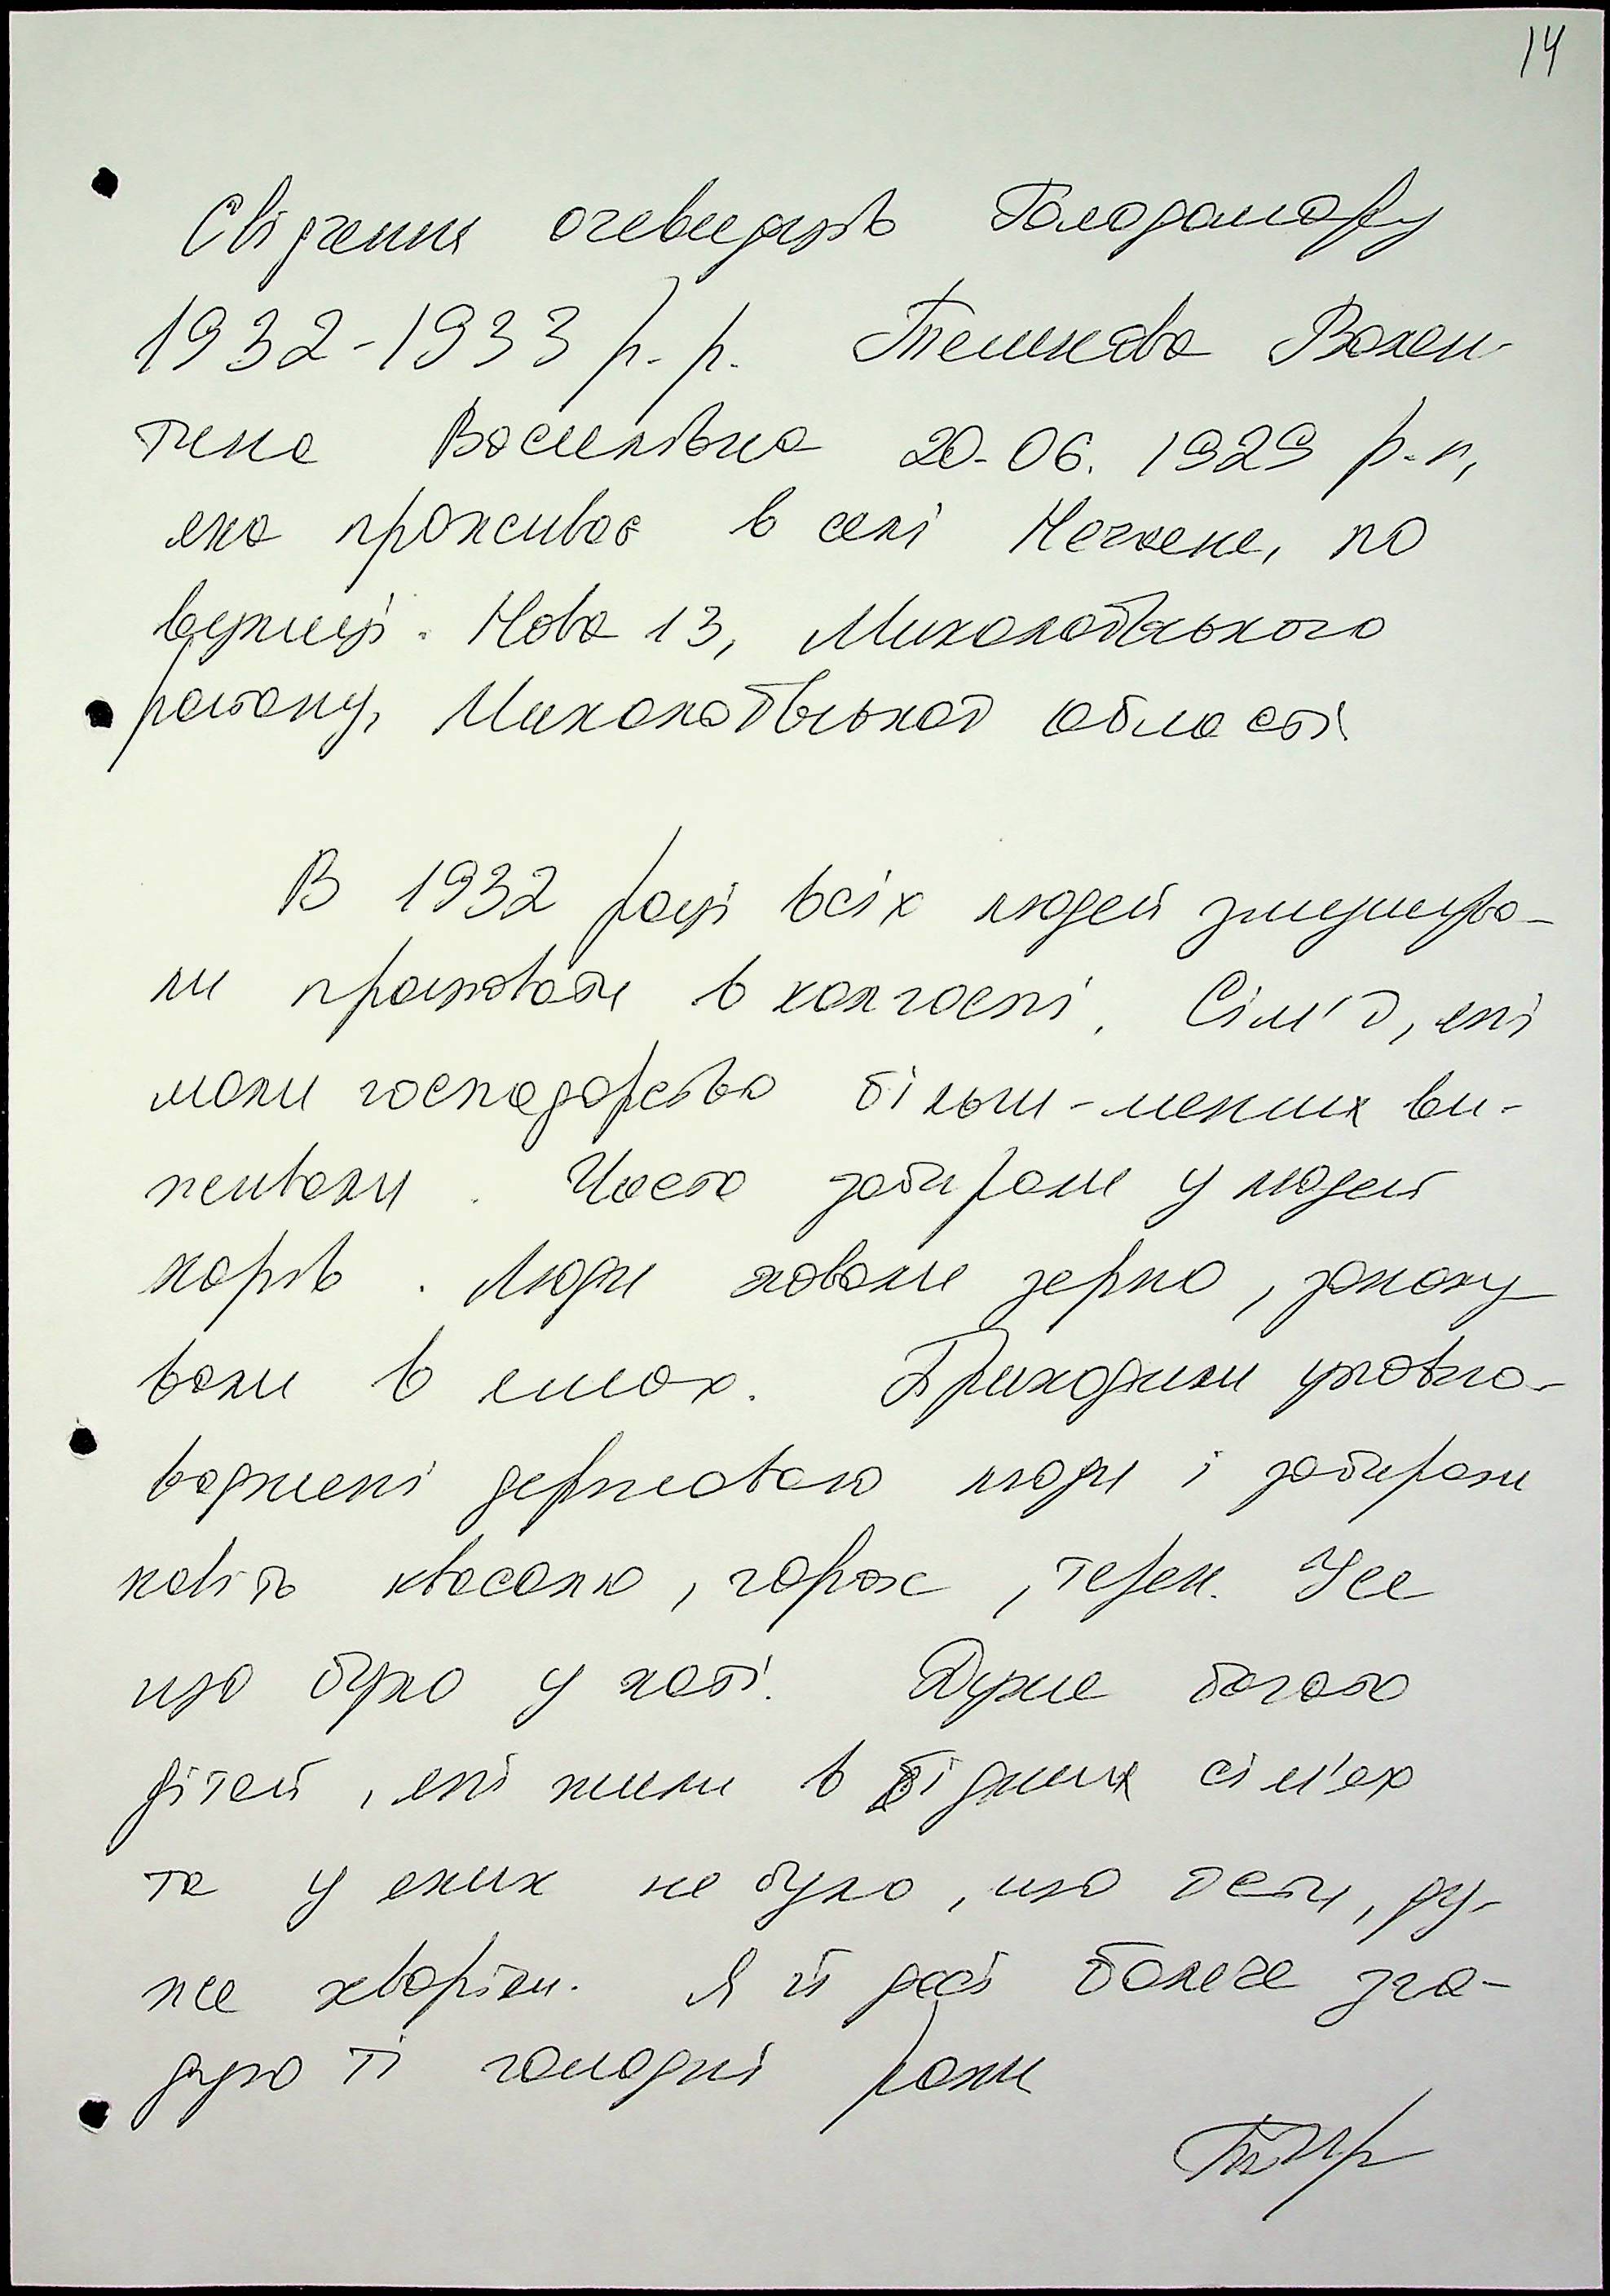 14
Свідчення очевидців Голодомору
1932-1933 р. р. Тешнєва Вален-
тина Василівна 20.06.1929 р.н,
яка проживає в селі Нечаяне, по
вулиці. Нова 13, Миколаївського
району, Миколаївської області.
В 1932 році всіх людей змушува-
ли працювати в колгоспі. Сім'ї, які
мали господарство більш-менших ви-
живали. Часто забирали у людей
корів. Люди ховали зерно, закопу
вали в ямах. Приходили уповно-
важнені державою люди і забирали
навіть квасолю, горох, терен. Усе
що було у хаті. Дуже багато
дітей, які жили в бідних сім'ях
та у яких не було, що їсти, ду-
же хворіли. Я й досі боляче зга-
дую ті голодні роки